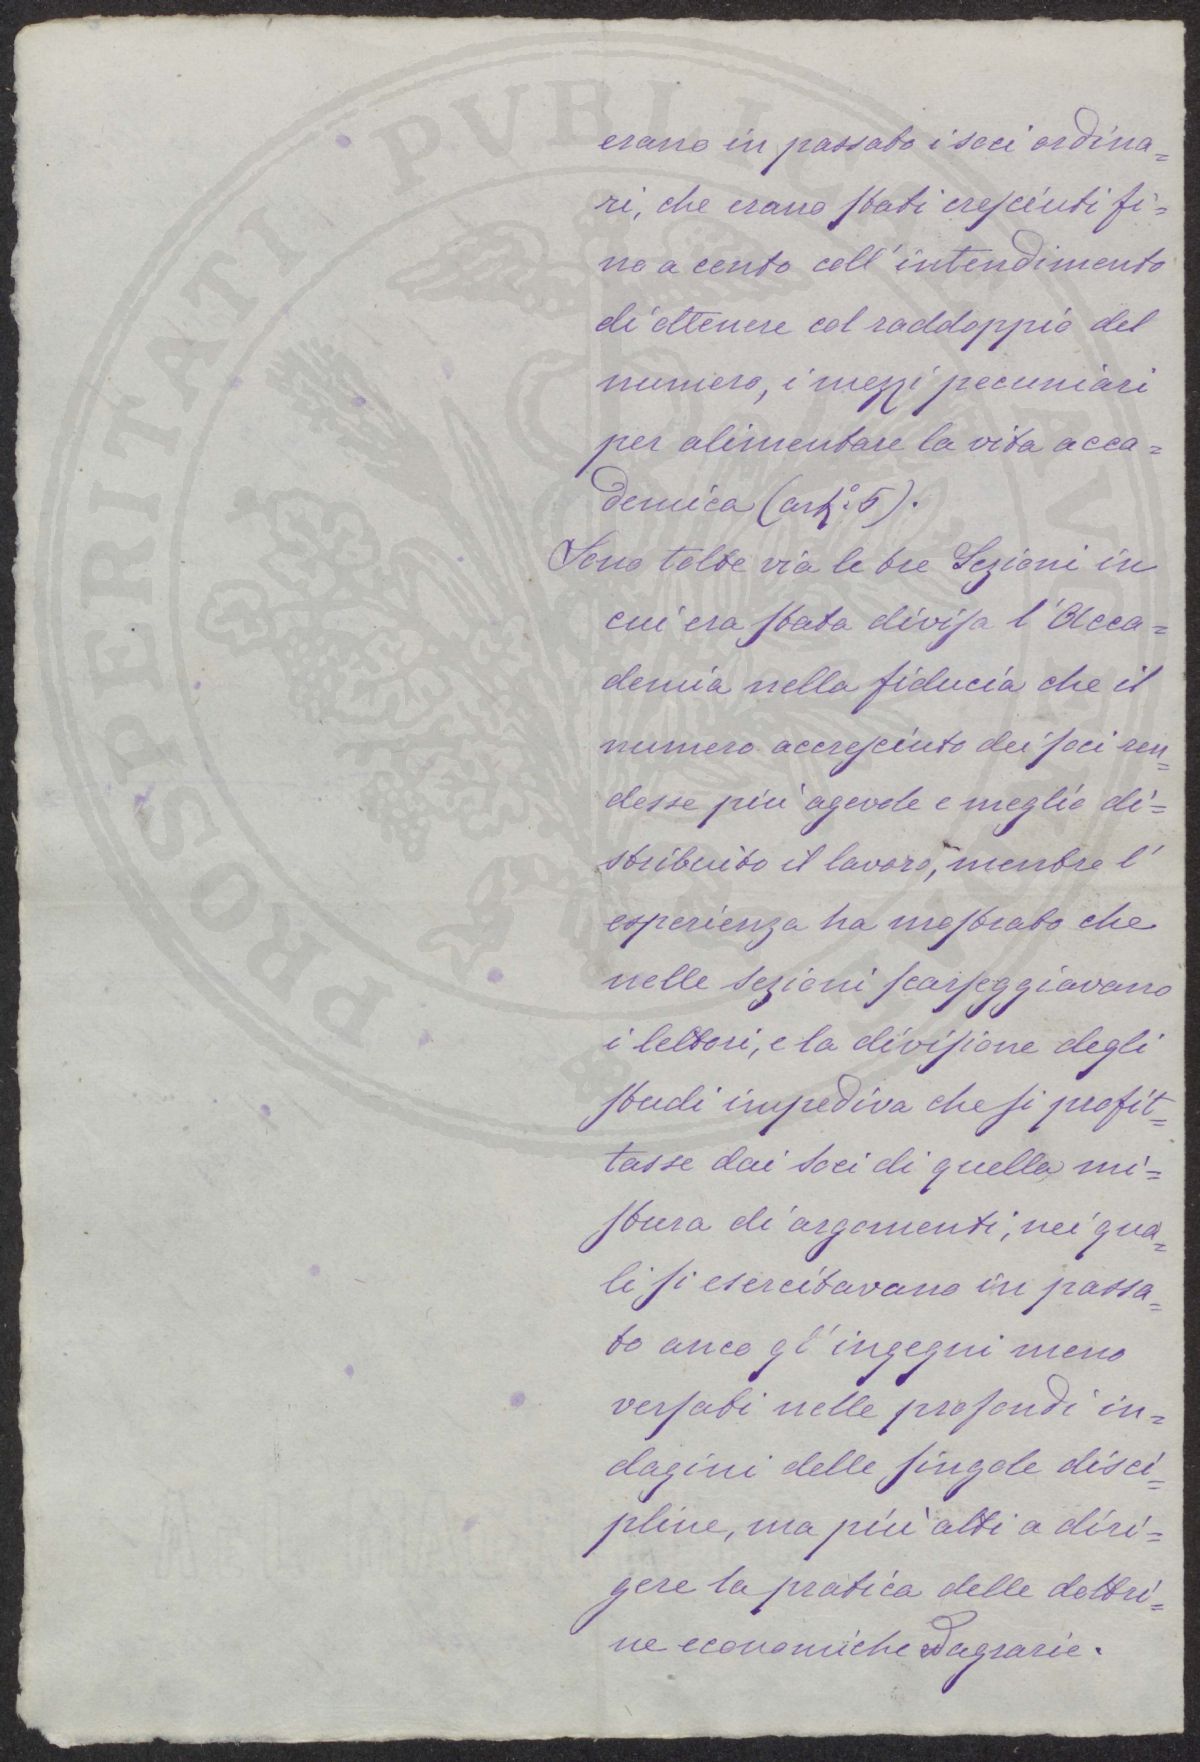 erano in passato i soci ordina=
ri, che erano stati cresciuti fi=
no a cento coll'intendimento
di ottenere col raddoppio del
numero, i mezzi pecuniari
per alimentare la vita acca=
demica (art.º 5).
Sono tolte via le tre Sezioni in
cui era stata divisa l'Acca=
demia nella fiducia che il
numero accresciuto dei soci ren=
desse più agevole e meglio di=
stribuito il lavoro, mentre l'
esperienza ha mostrato che
nelle sezioni scarseggiavano
i lettori, e la divisione degli
studi impediva che si profit=
tasse dai soci di quella mi=
stura di argomenti, nei qua=
li si esercitavano in passa=
to anco gl'ingegni meno
versati nelle profondi in=
dagini delle singole disci=
pline, ma più atti a diri=
gere la pratica delle dottri=
ne economiche ed agrarie.
PROSPERITATI PVBLICAE AVGENDAE